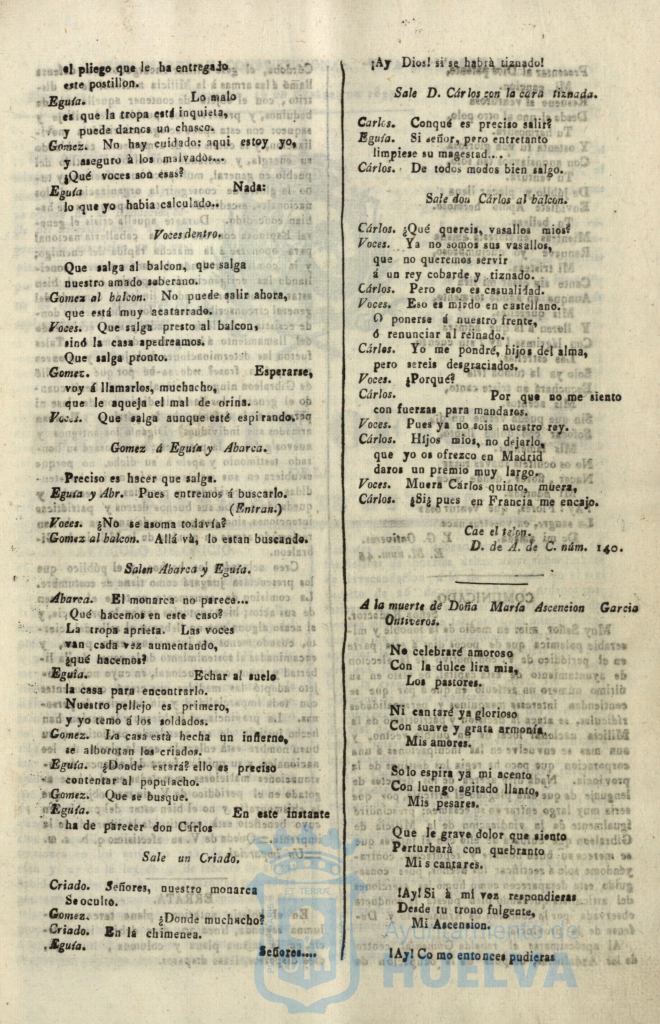 el pliego que le ha entregado
este postillon.
Eguía. Lo malo
es que la tropa está inquieta,
y puede darnos un chasco.
Gomez. No hay cuidado: aqui estoy yo,
y aseguro á los malvados...
¿Qué voces son esas?
Eguía Nada:
lo que yo habia calculado..
Voces dentro.
Que salga al balcon, que salga
nuestro amado soberano.
Gomez al balcon. No puede salir ahora,
que está muy acatarrado.
Voces. Que salga presto al balcon,
sinó la casa apedreamos.
Que salga pronto.
Gomez. Esperarse,
voy á llamarlos, muchacho,
que le aqueja el mal de orina.
Voces. Que salga aunque esté espirando.
Gomez á Eguía y Abarca.
Preciso es hacer que salga.
Eguía y Abr. Pues entremos á buscarlo.
(Entran.)
Voces. ¿No se asoma todavía?
Gomez al balcon. Allá vá, lo estan buscando.
Salen Abarca y Eguía.
Abarca. El monarca no parece...
¿Qué hacemos en este caso?
La tropa aprieta. Las voces
van cada vez aumentando,
¿qué hacemos?
Eguía. Echar al suelo
la casa para encontrarlo.
Nuestro pellejo es primero,
y yo temo á los soldados.
Gomez. La casa está hecha un infierno,
se alborotan los criados.
Eguía. ¿Donde estará? ello es preciso
contentar al populacho.
Gomez. Que se busque.
Eguía. En este instante
ha de parecer don Cárlos
Sale un Criado.
Criado. Señores, nuestro monarca
Se oculto.
Gomez. ¿Donde muchacho?
Criado. En la chimenea.
Eguía. Señores....
¡Ay Dios! si se habrá tiznado!
Sale D. Cárlos con la cara tiznada.
Carlos. Conqué es preciso salir?
Eguía. Si señor, pero entretanto
limpiese su magestad...
Cárlos. De todos modos bien salgo.
Sale don Cárlos al balcon.
Cárlos. ¿Qué quereis, vasallos mios?
Voces. Ya no somos sus vasallos,
que no queremos servir
á un rey cobarde y tiznado.
Cárlos. Pero eso es casualidad.
Voces. Eso es miedo en castellano.
O ponerse á nuestro frente,
ó renunciar al reinado.
Cárlos. Yo me pondré, hijos del alma,
pero sereis desgraciados.
Voces. ¿Porqué?
Cárlos. Por que no me siento
con fuerzas para mandaros.
Voces. Pues ya no sois nuestro rey.
Cárlos. Hijos mios, no dejarlo,
que yo os ofrezco en Madrid
daros un premio muy largo.
Voces. Muera Cárlos quinto, muera,
Cárlos. ¿Si¿ pues en Francia me encajo.
Cae el telon.
D. de A. de C. núm. 140.
A la muerte de Doña María Ascencion Garcia
Ontiveros.
No celebraré amoroso
Con la dulce lira mia,
Los pastores.
Ni cantaré ya glorioso
Con suave y grata armonía,
Mis amores.
Solo espira ya mi acento
Con luengo agitado llanto,
Mis pesares.
Que le grave dolor que siento
Perturbará con quebranto
Mis cantares.
¡Ay! Si á mi voz respondieras
Desde tu trono fulgente,
Mi Ascension.
¡Ay! Como entonces pudieras
Ayuntamiento de
HUELVA